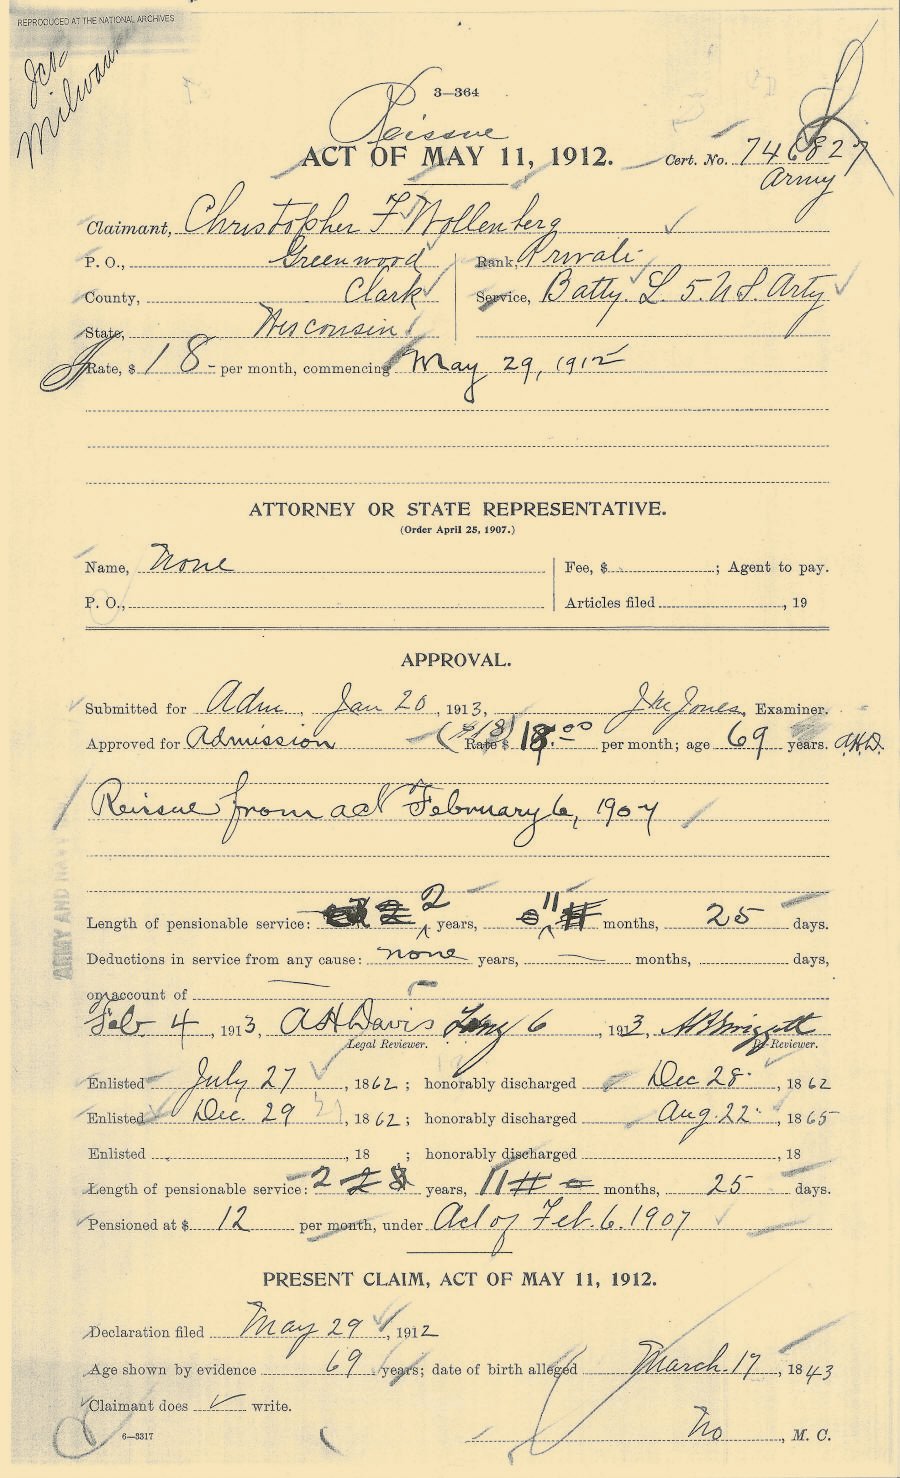 REPRODUCED AT THE NATIONAL ARCHIVES
Milwau.
3—364
Reissue
ACT OF MAY 11, 1912.
Cert. No. 746827
Army
Claimant, Christopher F Wollenberg
P. O., Greenwood Rank, Private
County, Clark Service, Batty. L. 5. U.S. Arty
State, Wisconsin
Rate, $ 18- per month, commencing May 29, 1912
ATTORNEY OR STATE REPRESENTATIVE.
(Order April 25, 1907.)
Name, None Fee, $ ; Agent to pay.
P. O., Articles filed , 19
APPROVAL.
Submitted for Adm. Jan 20, 1913, Jones, Examiner.
Approved for Admission ($18) Rate $ 18.00 per month; age 69 years. A.H.D.
Reissue from act February 6, 1907
ARMY AND NAVY
Length of pensionable service: 2 years, 11 months, 25 days.
Deductions in service from any cause: none years, — months, days,
on account of
Feb. 4, 1913, A H Davis 6, 1913,
Legal Reviewer. Re-Reviewer.
Enlisted July 27, 1862; honorably discharged Dec 28, 1862
Enlisted Dec. 29, 1862; honorably discharged Aug. 22, 1865
Enlisted , 18 ; honorably discharged , 18
Length of pensionable service: 2 years, 11 months, 25 days.
Pensioned at $ 12 per month, under Act of Feb. 6. 1907
PRESENT CLAIM, ACT OF MAY 11, 1912.
Declaration filed May 29, 1912
Age shown by evidence 69 years; date of birth alleged March. 17, 1843
Claimant does ✓ write.
6—3317 No, M. C.